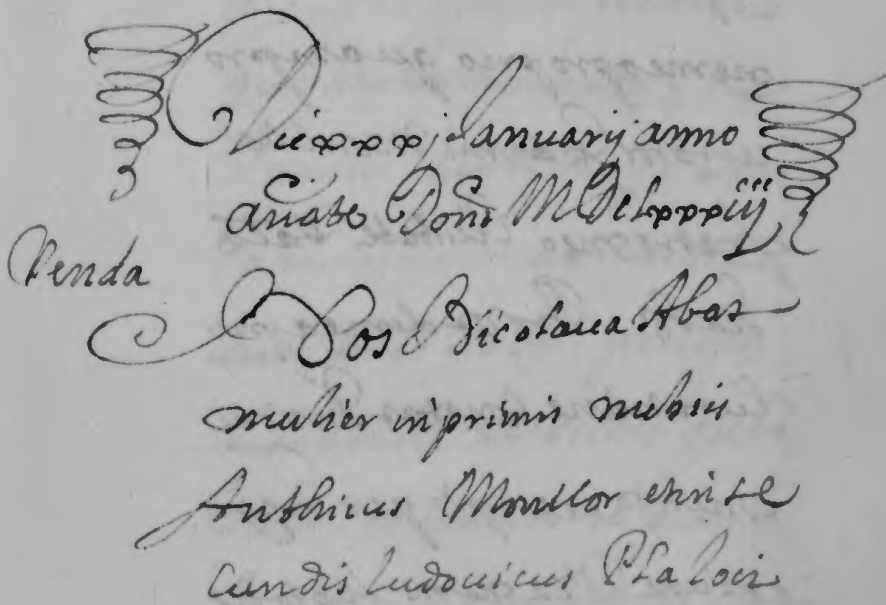 Die xxxj Januarij anno
a Nate Domi MDclxxxiij
Venda
Nos Nicolaua Abat
mulier in primis nubsis
Anthicus Montlor et in se
cundis ludouicus Pla loci